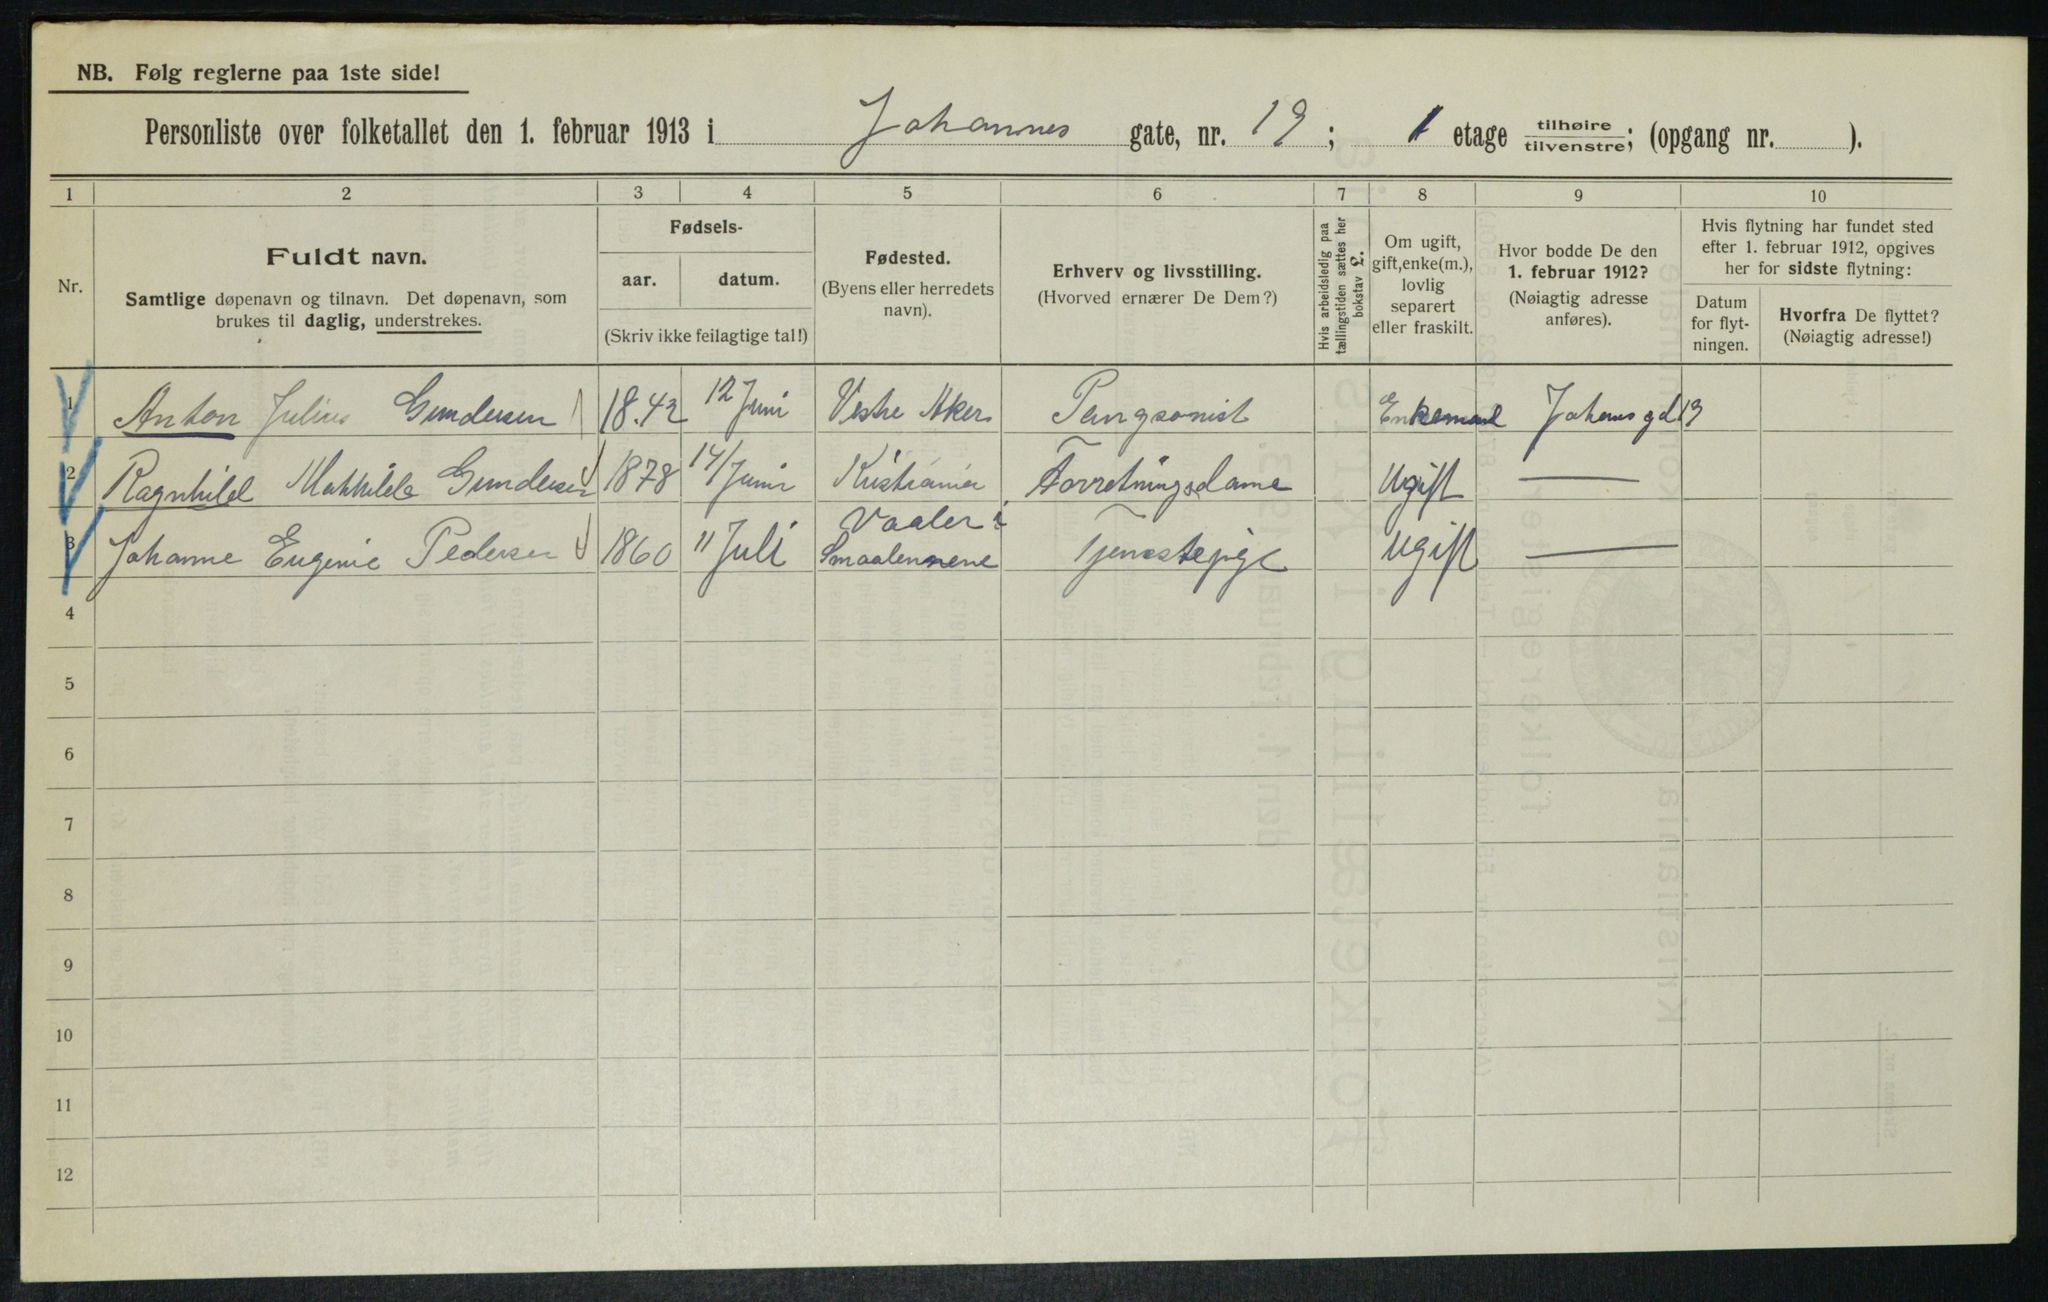 NB. Følg reglerne paa 1ste side!
Personliste over folketallet den 1. februar 1913 i Johannes gate, nr. 19; 1 etage tilhøire/tilvenstre; (opgang nr. ).
1 2 3 4 5 6 7 8 9 10
Nr.
Fuldt navn.
Samtlige døpenavn og tilnavn. Det døpenavn, som
brukes til daglig, understrekes.
Fødsels-
aar. datum.
(Skriv ikke feilagtige tal!)
Fødested.
(Byens eller herredets
navn).
Erhverv og livsstilling.
(Hvorved ernærer De Dem?)
Hvis arbeidsledig paa
tællingstiden sættes her
bokstav L.
Om ugift,
gift, enke(m.),
lovlig
separert
eller fraskilt.
Hvor bodde De den
1. februar 1912?
(Nøiagtig adresse
anføres).
Hvis flytning har fundet sted
efter 1. februar 1912, opgives
her for sidste flytning:
Datum
for flyt-
ningen.
Hvorfra De flyttet?
(Nøiagtig adresse!)
1 Anton Julius Gundersen 1842 12 Juni Vestre Aker Pengsonist Enkemand Johansgd 19
2 Ragnhild Mathilde Gundersen 1878 14/Juni Kristiania Forretningsdame Ugift —
3 Johanne Eugenie Pedersen 1860 11 Juli Vaaler i
Smaalennene Tjenestepige Ugift —
4
5
6
7
8
9
10
11
12